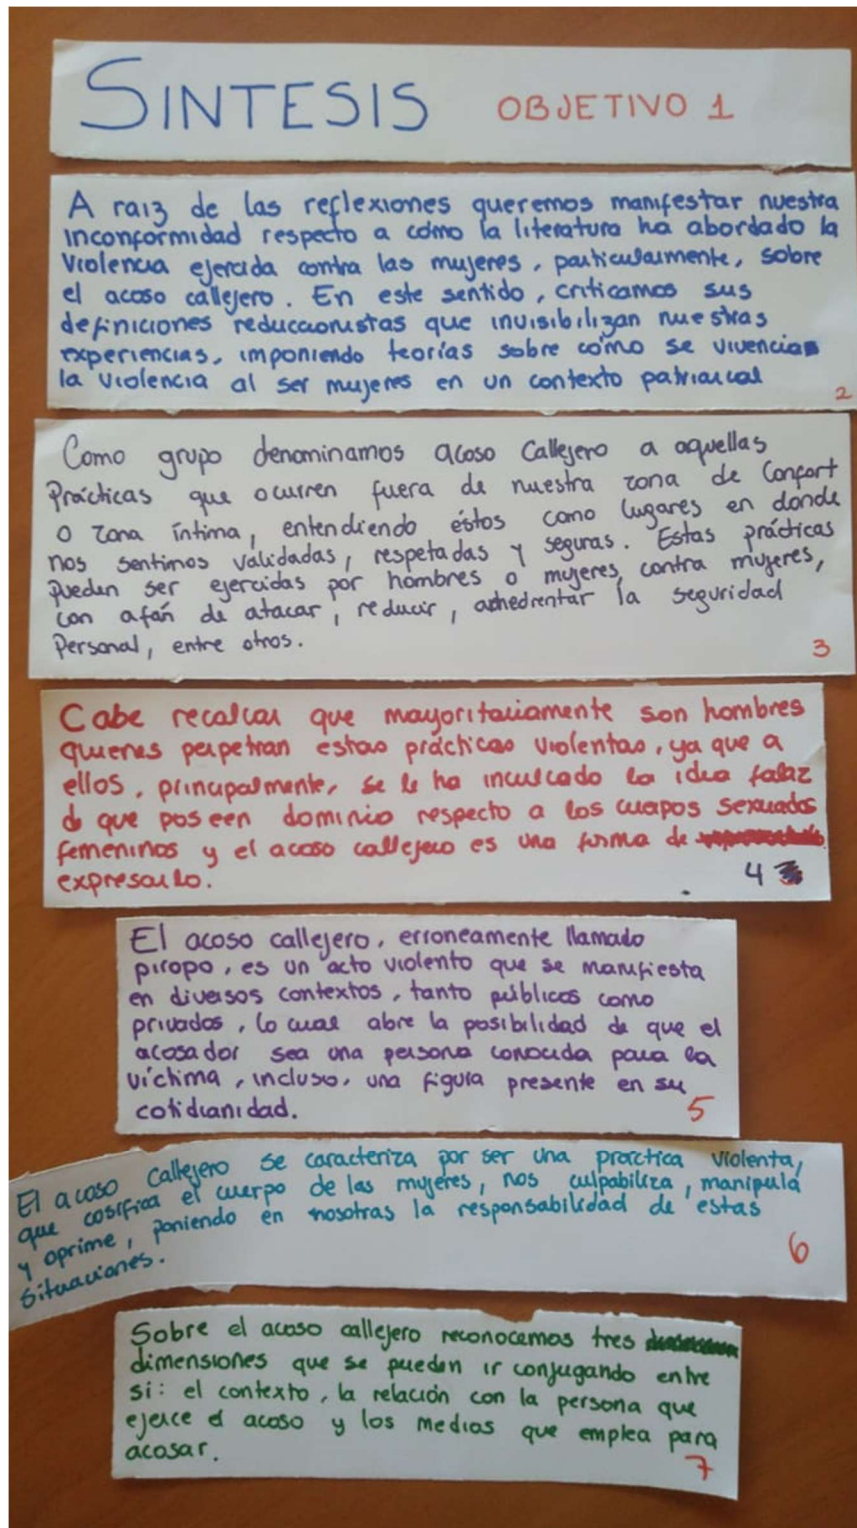 SINTESIS OBJETIVO 1
A raiz de las reflexiones queremos manifestar nuestra
inconformidad respecto a cómo la literatura ha abordado la
violencia ejercida contra las mujeres, particularmente, sobre
el acoso callejero. En este sentido, criticamos sus
definiciones reduccionistas que invisibilizan nuestras
experiencias, imponiendo teorías sobre cómo se vivencia
la violencia al ser mujeres en un contexto patriarcal
2
Como grupo denominamos acoso callejero a aquellas
Prácticas que ocurren fuera de nuestra zona de Confort
o zona íntima, entendiendo éstos como lugares en donde
nos sentimos validadas, respetadas y seguras. Estas prácticas
pueden ser ejercidas por hombres o mujeres, contra mujeres,
con afán de atacar, reducir, amedrentar la seguridad
Personal, entre otros.
3
Cabe recalcar que mayoritariamente son hombres
quienes perpetran estas prácticas violentas, ya que a
ellos, principalmente, se le ha inculcado la idea falaz
de que poseen dominio respecto a los cuerpos sexuados
femeninos y el acoso callejero es una forma de
expresarlo.
4
El acoso callejero, erroneamente llamado
piropo, es un acto violento que se manifiesta
en diversos contextos, tanto públicos como
privados, lo cual abre la posibilidad de que el
acosador sea una persona conocida para la
víctima, incluso, una figura presente en su
cotidianidad.
5
El acoso callejero se caracteriza por ser una practica violenta,
que cosifica el cuerpo de las mujeres, nos culpabiliza, manipula
y oprime, poniendo en nosotras la responsabilidad de estas
situaciones.
6
Sobre el acoso callejero reconocemos tres
dimensiones que se pueden ir conjugando entre
si: el contexto, la relación con la persona que
ejerce el acoso y los medios que emplea para
acosar.
7